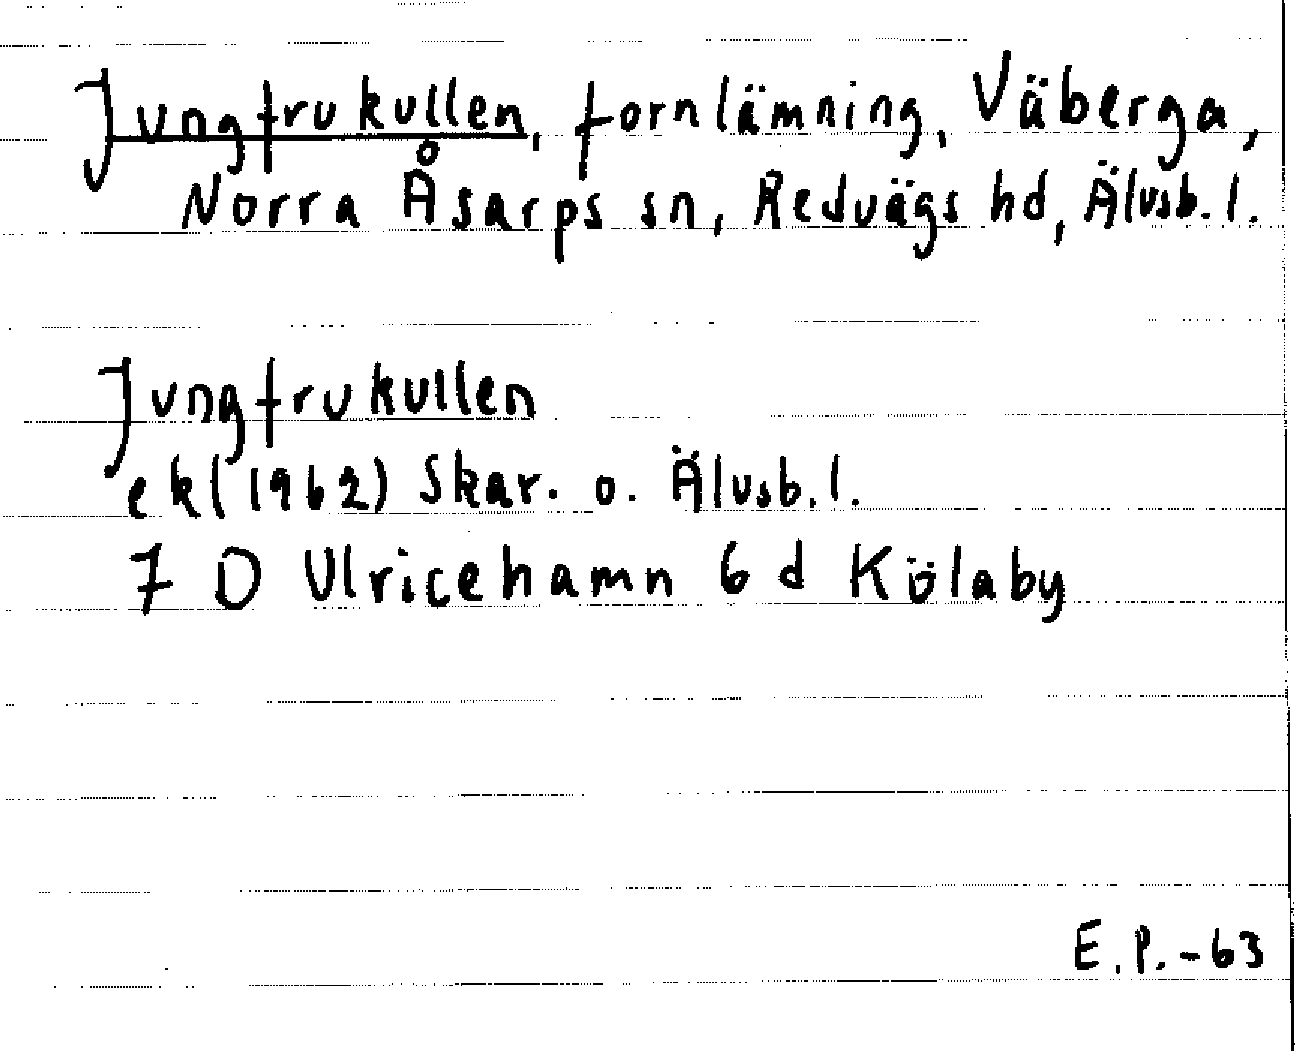 Jungfrukullen, fornlämning, Väberga,
Norra Åsarps sn, Redvägs hd, Älvsb. l.
Jungfrukullen
ek (1962) Skar. o. Älvsb. l.
7 D Ulricehamn 6 d Kölaby
E.P.-63